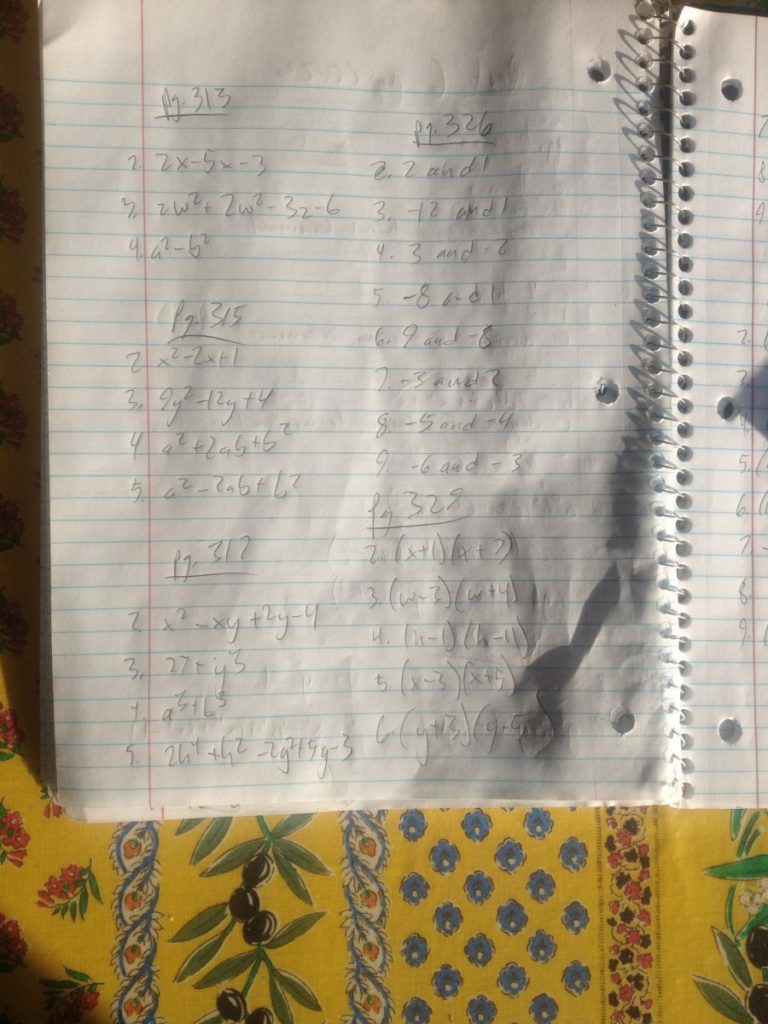 pg. 313
2. 2x-5x-3
3. 2w²+2w²-3z-6
4. a²-b²
pg. 315
2 x²-2x+1
3. 9y²-12y+4
4 a²+2ab+b²
5. a²-2ab+b²
pg. 317
2. x²-xy+2y-4
3. 27+y³
4. a³+b³
5. 2h⁴+h²-2y²+5y-3
pg. 326
2. 2 and 1
3. -12 and 1
4. 3 and -2
5. -8 and 1
6. 9 and -8
7. -3 and 2
8. -5 and -4
9. -6 and -3
pg 329
2. (x+1)(x+2)
3. (w-3)(w+4)
4. (h-1)(h-11)
5 (x-3)(x+5)
6.